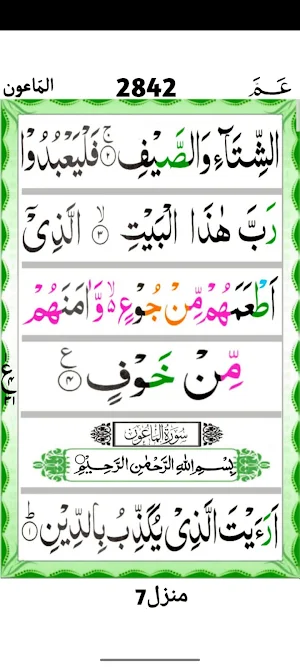 الماعون 2842 عَمَّ
الشِّتَآءِ وَالصَّيْفِ ۚ﴿۲﴾ فَلْيَعْبُدُوْا
رَبَّ هٰذَا الْبَيْتِ ۙ﴿۳﴾ الَّذِىْۤ
اَطْعَمَهُمْ مِّنْ جُوْعٍ ۙ۬ وَّاٰمَنَهُمْ
مِّنْ خَوْفٍ ﴿۴﴾ ع
سُوْرَةُ الْمَاعُوْن
بِسْمِ اللّٰهِ الرَّحْمٰنِ الرَّحِيْمِ
اَرَءَيْتَ الَّذِىْ يُكَذِّبُ بِالدِّيْنِ ؕ﴿۱﴾
منزل7